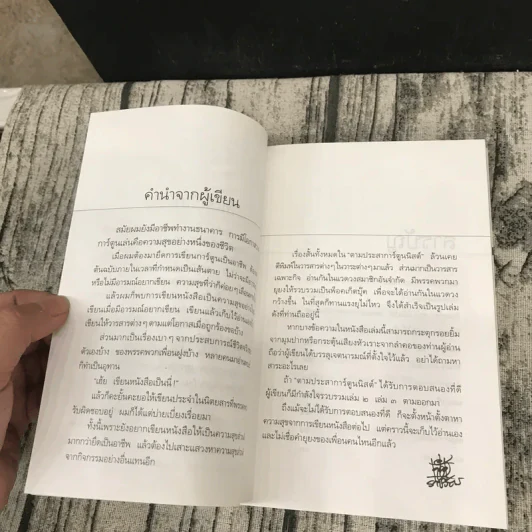 คำนำจากผู้เขียน
สมัยผมยังมีอาชีพทำงานธนาคาร การมีโอกาส
การ์ตูนเล่นคือความสุขอย่างหนึ่งของชีวิต
เมื่อผมต้องมายึดการเขียนการ์ตูนเป็นอาชีพ
ต้นฉบับภายในเวลาที่กำหนดเป็นเส้นตาย ไม่ว่าจะมี
หรือไม่มีอารมณ์อยากเขียน ความสุขที่ว่าก็ค่อยๆ
แล้วผมก็พบการเขียนหนังสือเป็นความสุขอย่างใหม่
เขียนเมื่อมีอารมณ์อยากเขียน เขียนแล้วเก็บไว้อ่าน
เขียนให้วารสารต่างๆ ตามแต่โอกาสเมื่อถูกร้องขอบ้าง
ส่วนมากเป็นเรื่องเบาๆ จากประสบการณ์ชีวิตจริง
ตัวเองบ้าง ของพรรคพวกเพื่อนฝูงบ้าง หลายคน
ก็ทำเป็นอุทาน
"เฮ้ย เขียนหนังสือเป็นนี่!"
แล้วก็คะยั้นคะยอให้เขียนประจำในนิตยสารที่พรรคพวก
รับผิดชอบอยู่ ผมก็ได้แต่บ่ายเบี่ยงเรื่อยมา
ทั้งนี้เพราะยังอยากเขียนหนังสือให้เป็นความสุข
มากกว่ายึดเป็นอาชีพ แล้วต้องไปเสาะแสวงหาความสุข
จากกิจกรรมอย่างอื่นแทนอีก
เรื่องสั้นทั้งหมดใน "ตามประสาการ์ตูนนิสต์" ล้วนเคย
ตีพิมพ์ในวารสารต่างๆ ในวาระต่างๆ มาแล้ว ส่วนมากเป็นวารสาร
เฉพาะกิจ อ่านกันในแวดวงสมาชิกอันจำกัด มีพรรคพวกมา
ยุยงให้รวบรวมเป็นพ็อคเก็ตบุ๊ค เพื่อจะได้อ่านกันในแวดวง
กว้างขึ้น ในที่สุดก็ทานแรงยุไม่ไหว จึงได้สำเร็จเป็นรูปเล่ม
ดังที่ท่านถืออยู่นี้
หากบางข้อความในหนังสือเล่มนี้สามารถกระตุกรอยยิ้ม
จากมุมปากหรือกระตุ้นเสียงหัวเราะจากลำคอของท่านผู้อ่าน
ถือว่าผู้เขียนได้บรรลุเจตนารมณ์ที่ตั้งใจไว้แล้ว อย่าได้ถามหา
สาระอะไรเลย
ถ้า "ตามประสาการ์ตูนนิสต์" ได้รับการตอบสนองที่ดี
ผู้เขียนก็มีกำลังใจรวบรวมเล่ม ๒ เล่ม ๓ ตามออกมา
ถึงแม้จะไม่ได้รับการตอบสนองที่ดี ก็จะตั้งหน้าตั้งตาหา
ความสุขจากการเขียนหนังสือต่อไป แต่คราวนี้จะเก็บไว้อ่านเอง
และไม่เชื่อคำยุยงของเพื่อนคนไหนอีกแล้ว